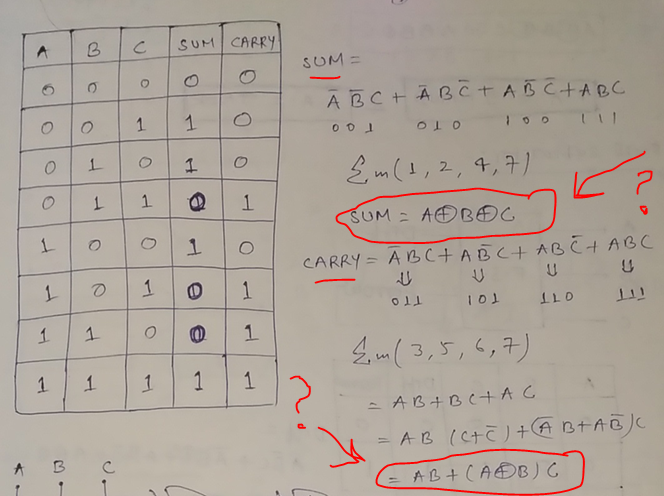 A B C SUM CARRY
0 0 0 0 0
0 0 1 1 0
0 1 0 1 0
0 1 1 0 1
1 0 0 1 0
1 0 1 0 1
1 1 0 0 1
1 1 1 1 1
A B C
SUM =
A̅ B̅ C + A̅ B C̅ + A B̅ C̅ + A B C
0 0 1 0 1 0 1 0 0 1 1 1
Σm(1, 2, 4, 7)
SUM = A⊕B⊕C
?
CARRY = A̅ B C + A B̅ C + A B C̅ + A B C
⇓ ⇓ ⇓ ⇓
011 101 110 111
Σm(3, 5, 6, 7)
?
= AB + BC + AC
= AB (C + C̅) + (A̅ B + A B̅) C
= AB + (A⊕B) C